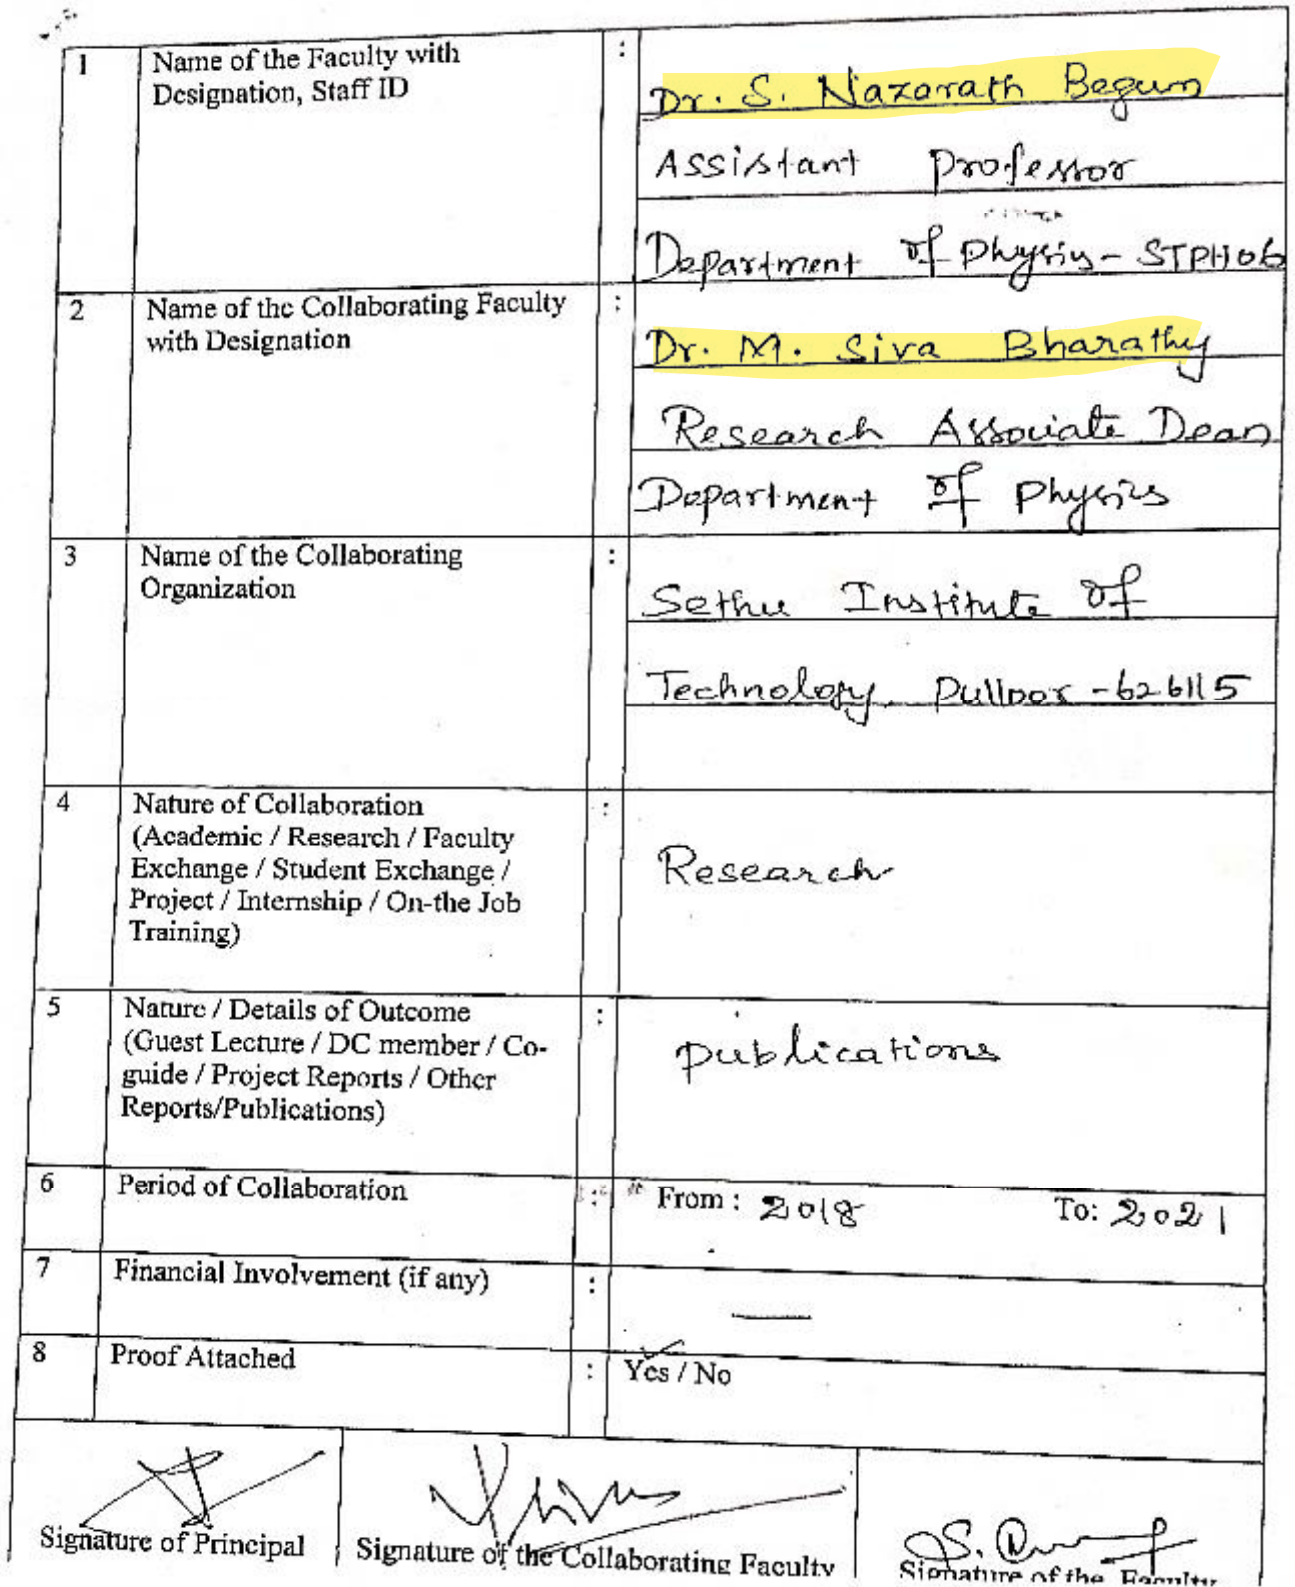 1 Name of the Faculty with : Dr. S. Nazarath Begum
Designation, Staff ID
Assistant Professor
Department of Physics - STPH06
2 Name of the Collaborating Faculty : Dr. M. Siva Bharathy
with Designation
Research Associate Dean
Department of Physics
3 Name of the Collaborating : Sethu Institute of
Organization
Technology, Pulloor - 626115
4 Nature of Collaboration :
(Academic / Research / Faculty
Exchange / Student Exchange / Research
Project / Internship / On-the Job
Training)
5 Nature / Details of Outcome :
(Guest Lecture / DC member / Co- Publications
guide / Project Reports / Other
Reports/Publications)
6 Period of Collaboration : From : 2018 To: 2021
7 Financial Involvement (if any) : —
8 Proof Attached : Yes / No
Signature of Principal
Signature of the Collaborating Faculty
Signature of the Faculty